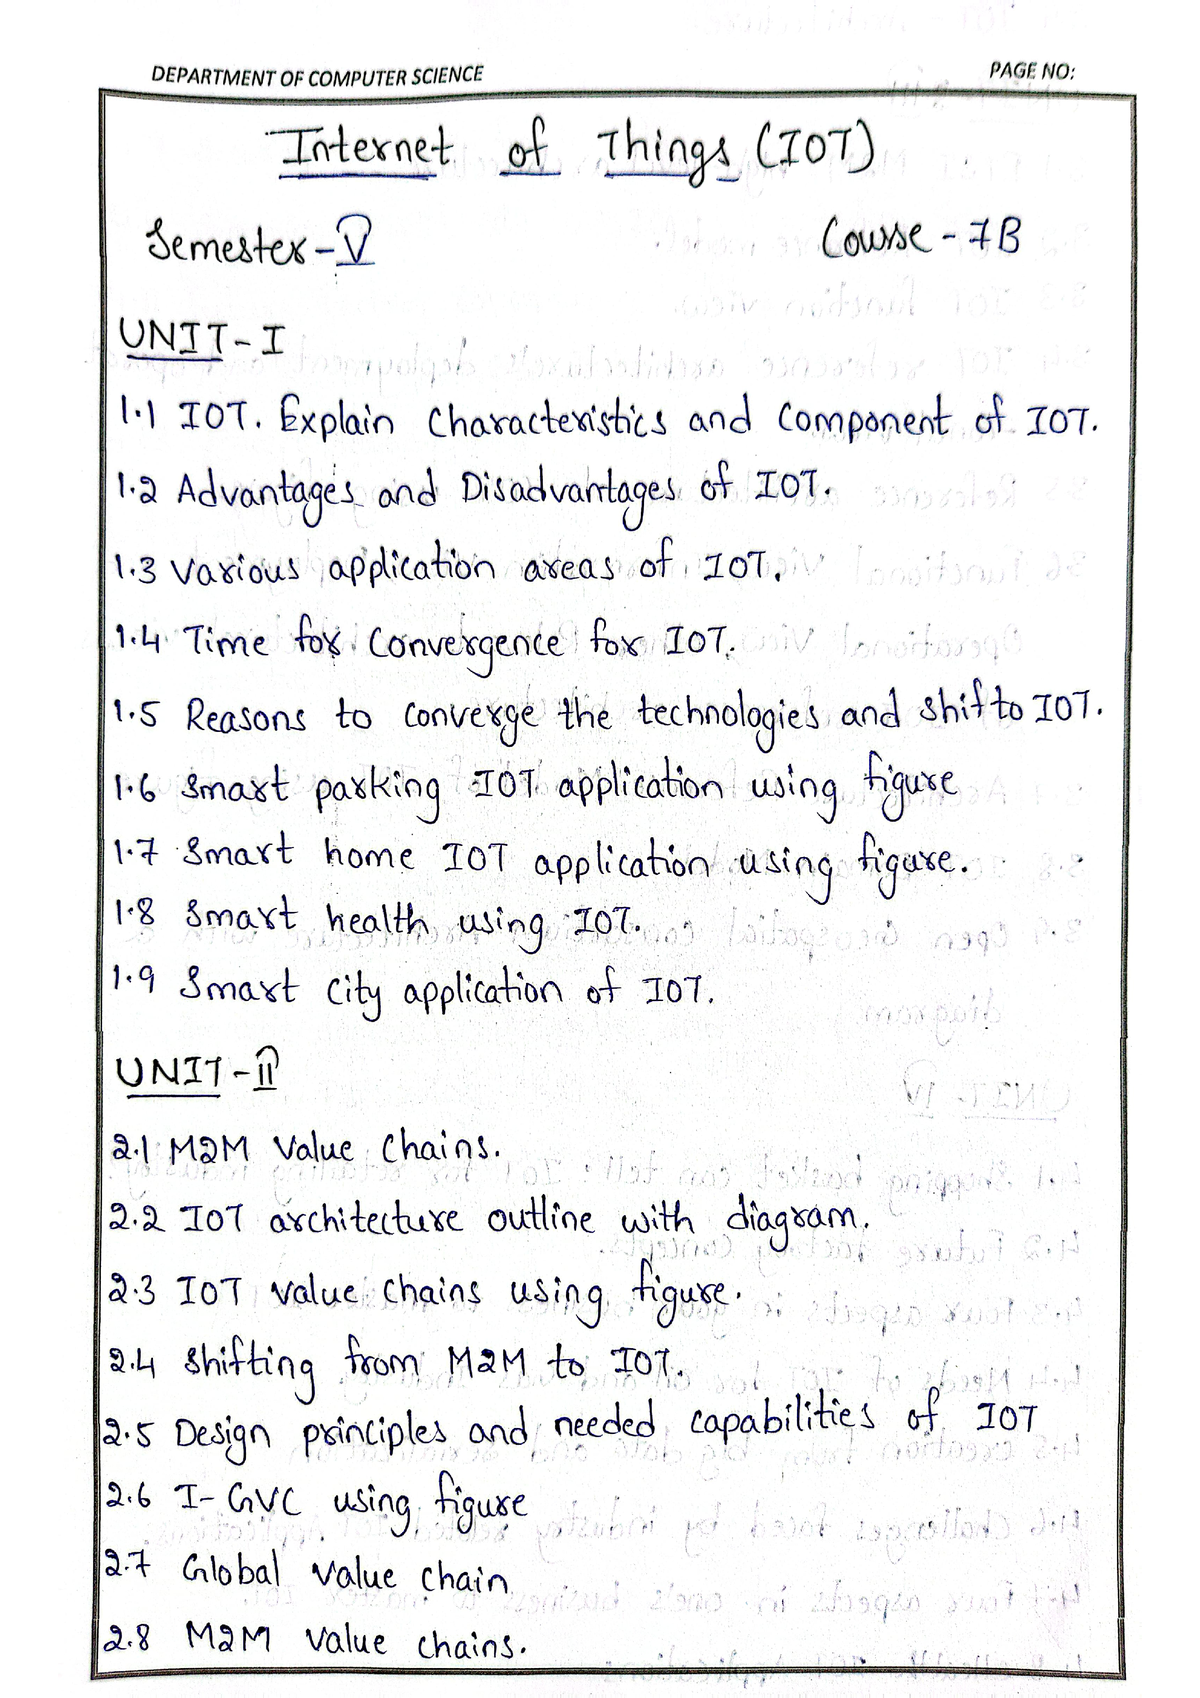 DEPARTMENT OF COMPUTER SCIENCE PAGE NO:
Internet of Things (IOT)
Semester-V Course-7B
UNIT-I
1.1 IOT. Explain Characteristics and Component of IOT.
1.2 Advantages and Disadvantages of IOT.
1.3 Various application areas of IOT.
1.4 Time for Convergence for IOT.
1.5 Reasons to Converge the technologies and shift to IOT.
1.6 Smart parking IOT application using figure
1.7 Smart home IOT application using figure.
1.8 Smart health using IOT.
1.9 Smart City application of IOT.
UNIT-II
2.1 M2M Value Chains.
2.2 IOT architecture outline with diagram.
2.3 IOT value chains using figure.
2.4 Shifting from M2M to IOT.
2.5 Design principles and needed capabilities of IOT
2.6 I-GVC using figure
2.7 Global value chain
2.8 M2M value chains.